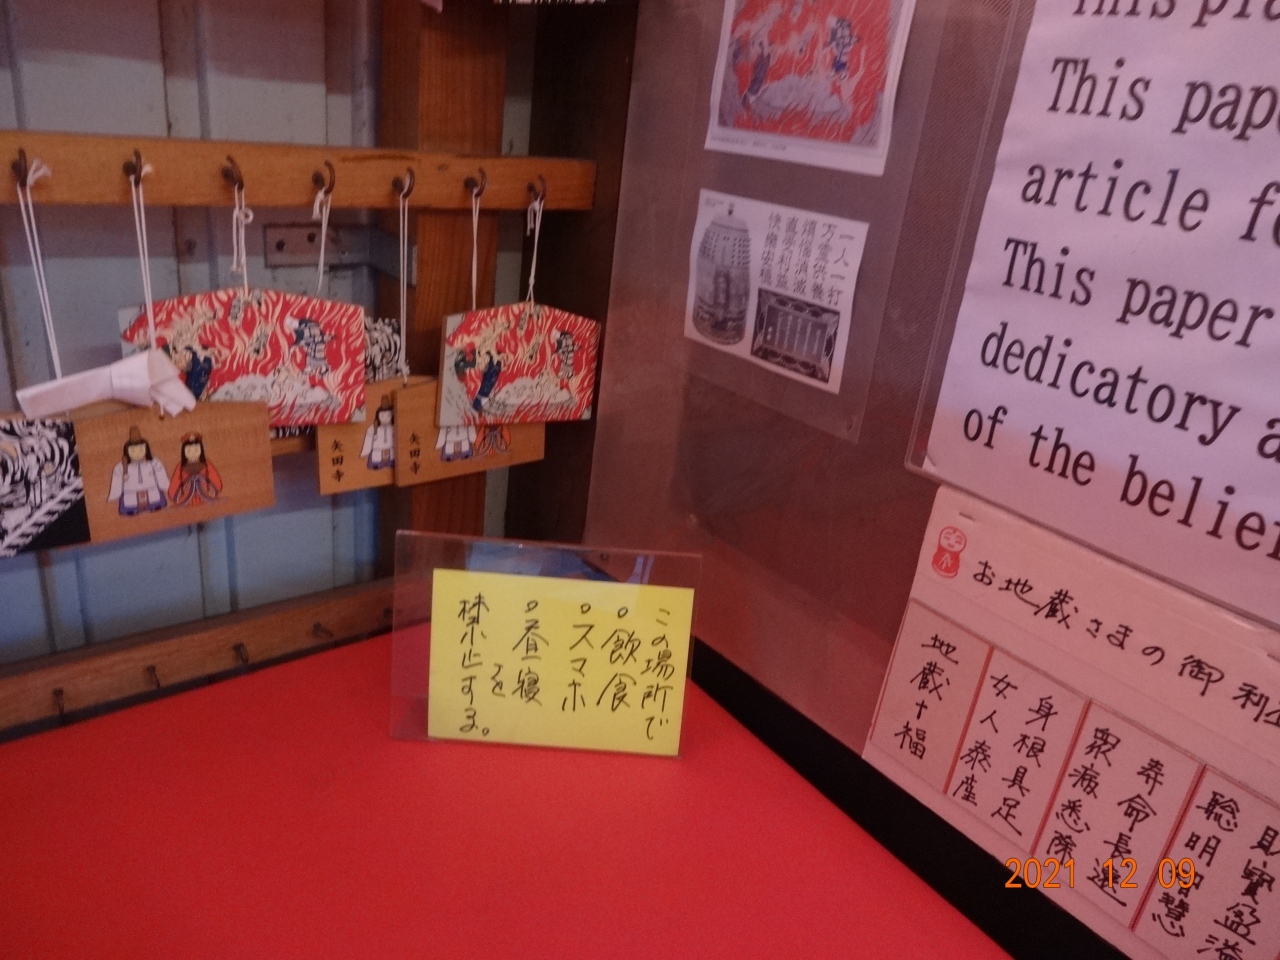 矢田寺
矢田寺
一人一打
万霊供養
煩悩消滅
直受利益
快楽安穏
This pap
article f
This paper
dedicatory a
of the belie
この場所で
。飲食
。スマホ
。昼寝
を
禁止する。
お地蔵さまの御利
地蔵十福
女人泰産
身根具足
衆病悉除
寿命長遠
聡明智慧
財宝盈溢
2021 12 09